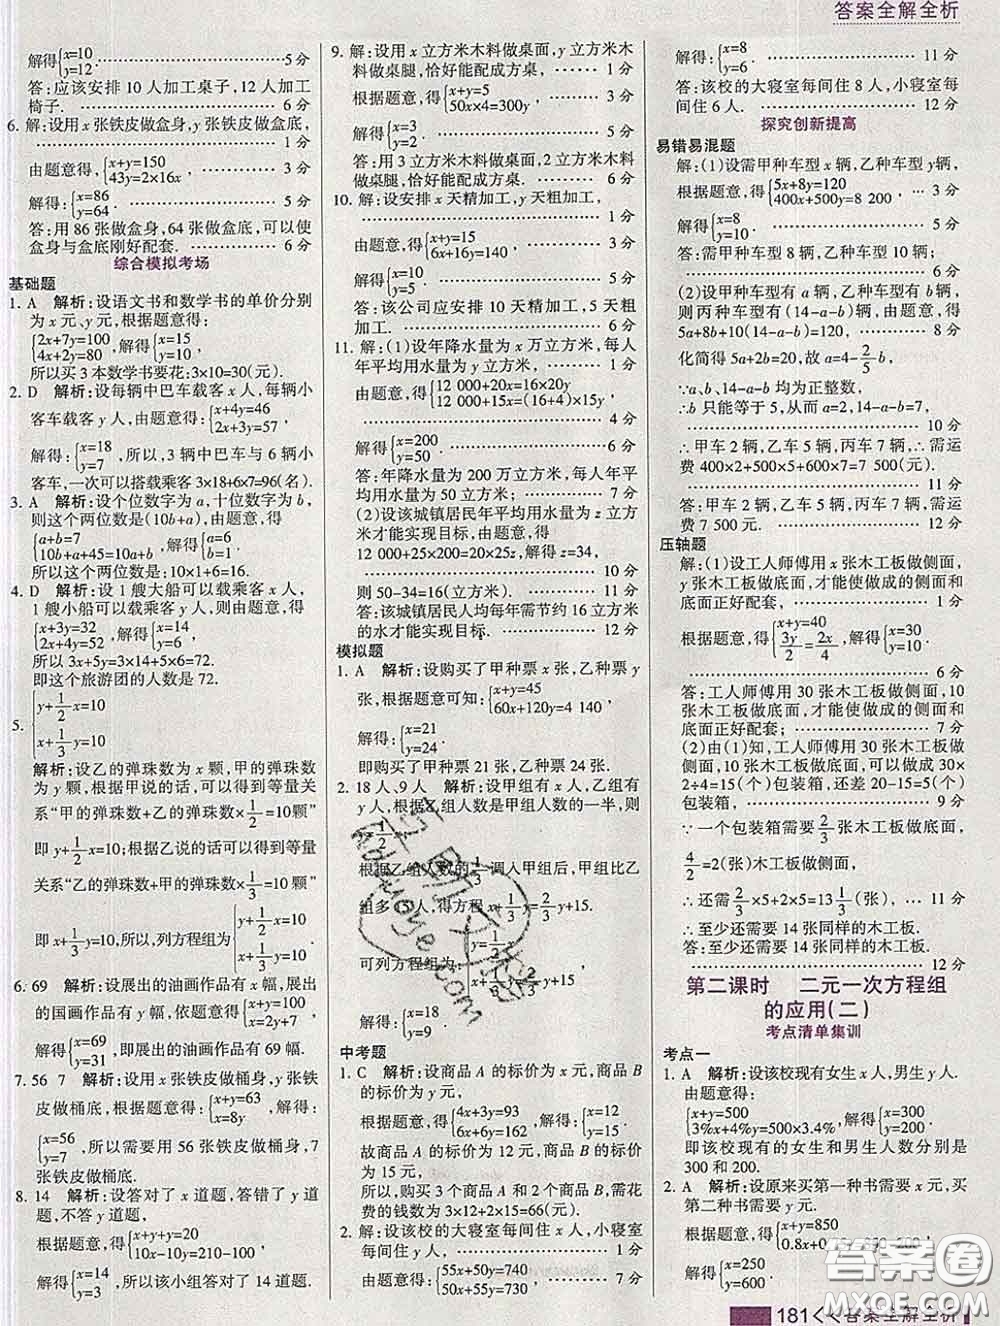 答案全解全析
解得{x=10 y=12. 5分
答:应该安排 10 人加工桌子,12 人加工
椅子. 6分
6. 解:设用 x 张铁皮做盒身,y 张铁皮做盒底,
1分
由题意得,{x+y=150 43y=2×16x, 3分
解得:{x=86 y=64. 5分
答:用 86 张做盒身,64 张做盒底,可以使
盒身与盒底刚好配套. 6分
综合模拟考场
基础题
1. A 解析:设语文书和数学书的单价分别
为 x 元、y 元,根据题意得:
{2x+7y=100 4x+2y=80 ,解得{x=15 y=10 ,
所以买 3 本数学书要花:3×10=30(元).
2. D 解析:设每辆中巴车载客 x 人,每辆小
客车载客 y 人,由题意得:{x+4y=46 2x+3y=57,
解得:{x=18 y=7 ,所以,3 辆中巴车与 6 辆小
客车,一次可以搭乘客 3×18+6×7=96(名).
3. A 解析:设个位数字为 a,十位数字为 b,
则这个两位数是(10b+a),由题意,得
{a=b+5 10b+a+45=10a+b,解得{a=6 b=1.
所以这个两位数是:10×1+6=16.
4. D 解析:设 1 艘大船可以载乘客 x 人,
1 艘小船可以载乘客 y 人,则由题意,得
{x+3y=32 2x+4y=52,解得{x=14 y=6 .
所以 3x+5y=3×14+5×6=72.
即这个旅游团的人数是 72.
5. {y+1/2x=10 x+1/3y=10
解析:设乙的弹珠数为 x 颗,甲的弹珠数
为 y 颗,根据甲说的话,可以得到等量关
系“甲的弹珠数+乙的弹珠数×1/2=10颗”
即 y+1/2x=10;根据乙说的话可以得到等量
关系“乙的弹珠数+甲的弹珠数×1/3=10颗”
即 x+1/3y=10,所以,列方程组为{y+1/2x=10 x+1/3y=10
6. 69 解析:设展出的油画作品有 x 幅,展出
的国画作品有 y 幅,依题意得{x+y=100 x=2y+7 ,
解得{x=69 y=31,即展出的油画作品有 69 幅.
7. 56 7 解析:设用 x 张铁皮做桶身,y 张铁
皮做桶底,根据题意得:{x+y=63 x=8y ,
{x=56 y=7 ,所以需要用 56 张铁皮做桶身,7
张铁皮做桶底.
8. 14 解析:设答对了 x 道题,答错了 y 道
题,不答 y 道题,
由题意,得{x+y+y=20 10x-10y=210-100,
解得{x=14 y=3 ,所以该小组答对了 14 道题.
9. 解:设用 x 立方米木料做桌面,y 立方米木
料做桌腿,恰好能配成方桌, 1分
根据题意,得{x+y=5 50x×4=300y, 3分
解得{x=3 y=2. 5分
答:用 3 立方米木料做桌面,2 立方米木料
做桌腿,恰好能配成方桌. 6分
10. 解:设安排 x 天精加工,y 天粗加工,
1分
由题意得:{x+y=15 6x+16y=140, 3分
解得{x=10 y=5 . 5分
答:该公司应安排 10 天精加工,5 天粗
加工. 6分
11. 解:(1)设年降水量为 x 万立方米,每人
年平均用水量为 y 立方米, 1分
由题意,得{12 000+20x=16×20y 12 000+15x=(16+4)×15y,
4分
解得{x=200 y=50 . 6分
答:年降水量为 200 万立方米,每人年平
均用水量为 50 立方米. 7分
(2)设该城镇居民年平均用水量为 z 立方
米才能实现目标,由题意,得
12 000+25×200=20×25z,解得 z=34,
10分
则 50-34=16(立方米). 11分
答:该城镇居民人均每年需节约 16 立方米
的水才能实现目标. 12分
模拟题
1. A 解析:设购买了甲种票 x 张,乙种票 y
张,根据题意可知:{x+y=45 60x+120y=4 140,
解得:{x=21 y=24.
即购买了甲种票 21 张,乙种票 24 张.
2. 18 人,9 人 解析:设甲组有 x 人,乙组有
y 人,根据乙组人数是甲组人数的一半,则
根据乙组人数的1/3调入甲组后,甲组比乙
组多15人,得方程 x+1/3y=2/3y+15.
可列方程组为 x+1/3y=2/3y+15,
解得{x=18 y=9 .
中考题
1. C 解析:设商品 A 的标价为 x 元,商品 B
的标价为 y 元,
根据题意,得{4x+3y=93 6x+6y=162 ,解得{x=12 y=15.
故商品 A 的标价为 12 元,商品 B 的标价
为 15 元,
所以,购买 3 个商品 A 和 2 个商品 B,需花
费的钱数为 3×12+2×15=66(元).
2. 解:设该校的大寝室每间住 x 人,小寝室
每间住 y 人, 1分
由题意得:{55x+50y=740 50x+55y=730 7分
解得:{x=8 y=6. 11分
答:该校的大寝室每间住 8 人,小寝室每
间住 6 人. 12分
探究创新提高
易错易混题
解:(1)设需甲种车型 x 辆,乙种车型 y 辆,
根据题意,得{5x+8y=120 400x+500y=8 200, 3分
解得{x=8 y=10. 5分
答:需甲种车型 8 辆,乙种车型 10 辆;
6分
(2)设甲种车型有 a 辆,乙种车型有 b 辆,
则丙种车型有(14-a-b)辆,由题意得
5a+8b+10(14-a-b)=120, 8分
化简得 5a+2b=20,故 a=4-2/5b,
∵a、b、14-a-b 均为正整数,
∴b 只能等于 5,从而 a=2,14-a-b=7,
10分
∴甲车 2 辆,乙车 5 辆,丙车 7 辆,∴需运
费 400×2+500×5+600×7=7 500(元).
11分
答:甲车 2 辆,乙车 5 辆,丙车 7 辆,需运
费 7 500元. 12分
压轴题
解:(1)设工人师傅用 x 张木工板做侧面,
y 张木工板做底面,才能使做成的侧面和
底面正好配套, 1分
根据题意,得{x+y=40 3y/2=2x/4 ,解得{x=30 y=10.
6分
答:工人师傅用 30 张木工板做侧面,10
张木工板做底面,才能使做成的侧面和底
面正好配套; 7分
(2)由(1)知,工人师傅用 30 张木工板做
侧面,10 张木工板做底面,可以做成 30×
2÷4=15(个)包装箱,还差 20-15=5(个)
包装箱, 9分
∵一个包装箱需要2/3张木工板做底面,
4/2=2(张)木工板做侧面,
∴还需2/3×5+2×5=13 1/3(张), 11分
∴至少还需要 14 张同样的木工板.
答:至少还需要 14 张同样的木工板.
12分
第二课时 二元一次方程组
的应用(二)
考点清单集训
考点一
1. A 解析:设该校现有女生 x 人,男生 y 人.
由题意得:
{x+y=500 3%x+4%y=500×3.4%,解得{x=300 y=200.
即该校现有的女生和男生人数分别是
300 和 200.
2. A 解析:设原来买第一种书需要 x 元,买
第二种书需要 y 元.
根据题意,得{x+y=850
解得{x=250 y=600.
181<<答案全解全析